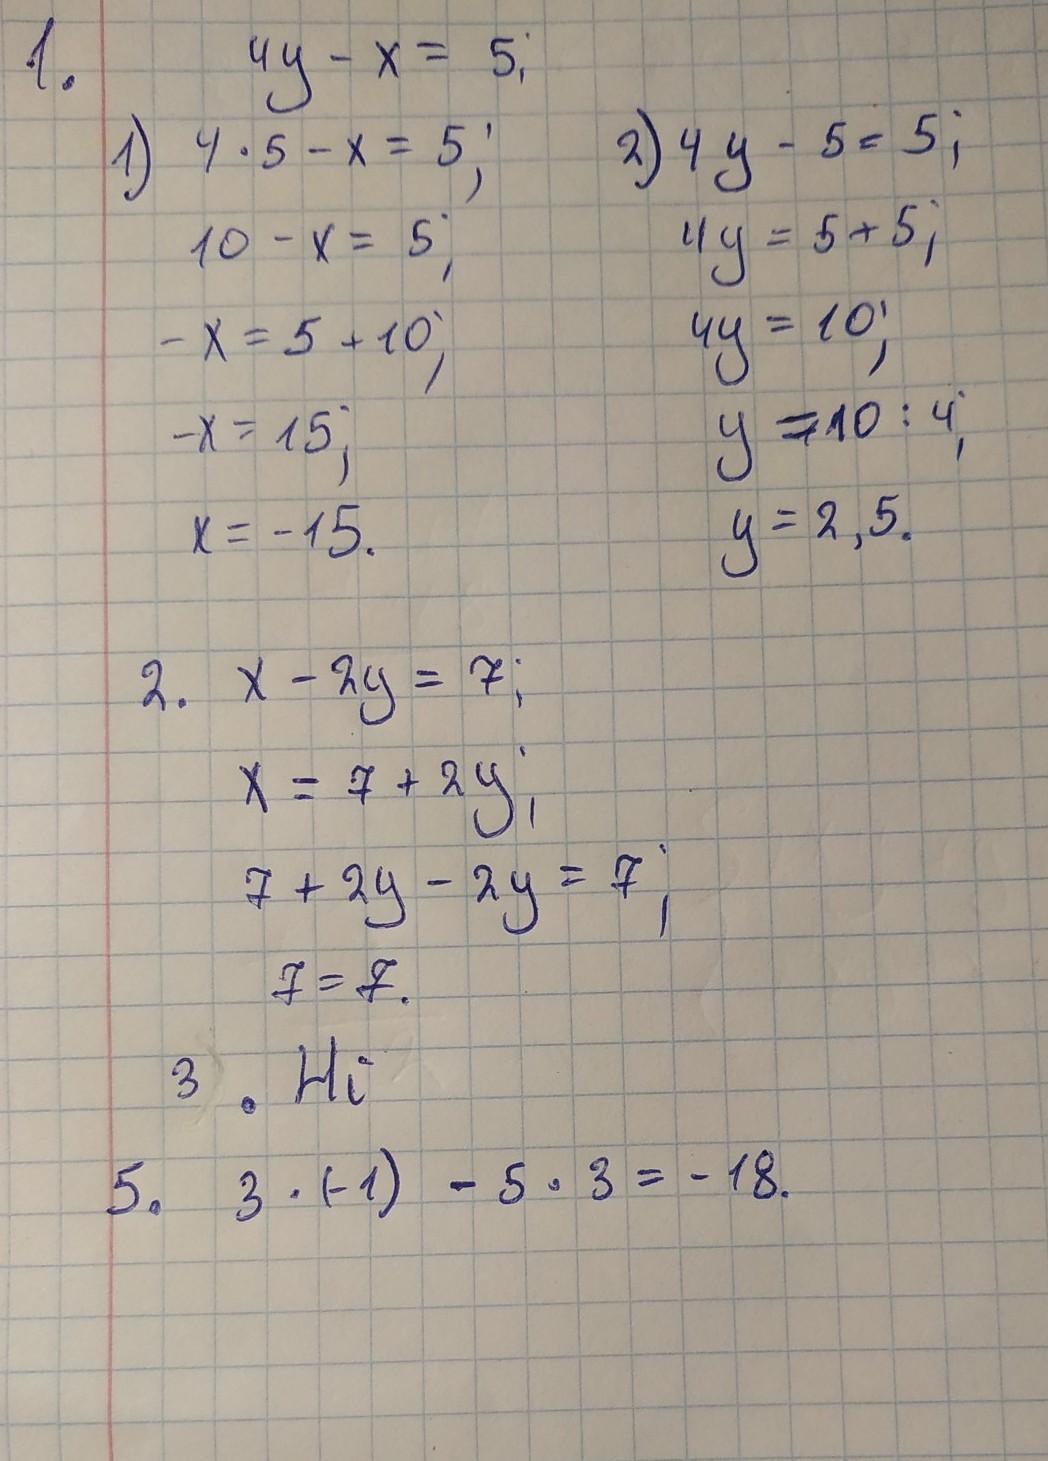 1. 4y - x = 5;
1) 4 · 5 - x = 5;
10 - x = 5;
-x = 5 + 10;
-x = 15;
x = -15.
2) 4y - 5 = 5;
4y = 5 + 5;
4y = 10;
y = 10 : 4;
y = 2,5.
2. x - 2y = 7;
x = 7 + 2y;
7 + 2y - 2y = 7;
7 = 7.
3 . Hi
5. 3 · (-1) - 5 · 3 = -18.